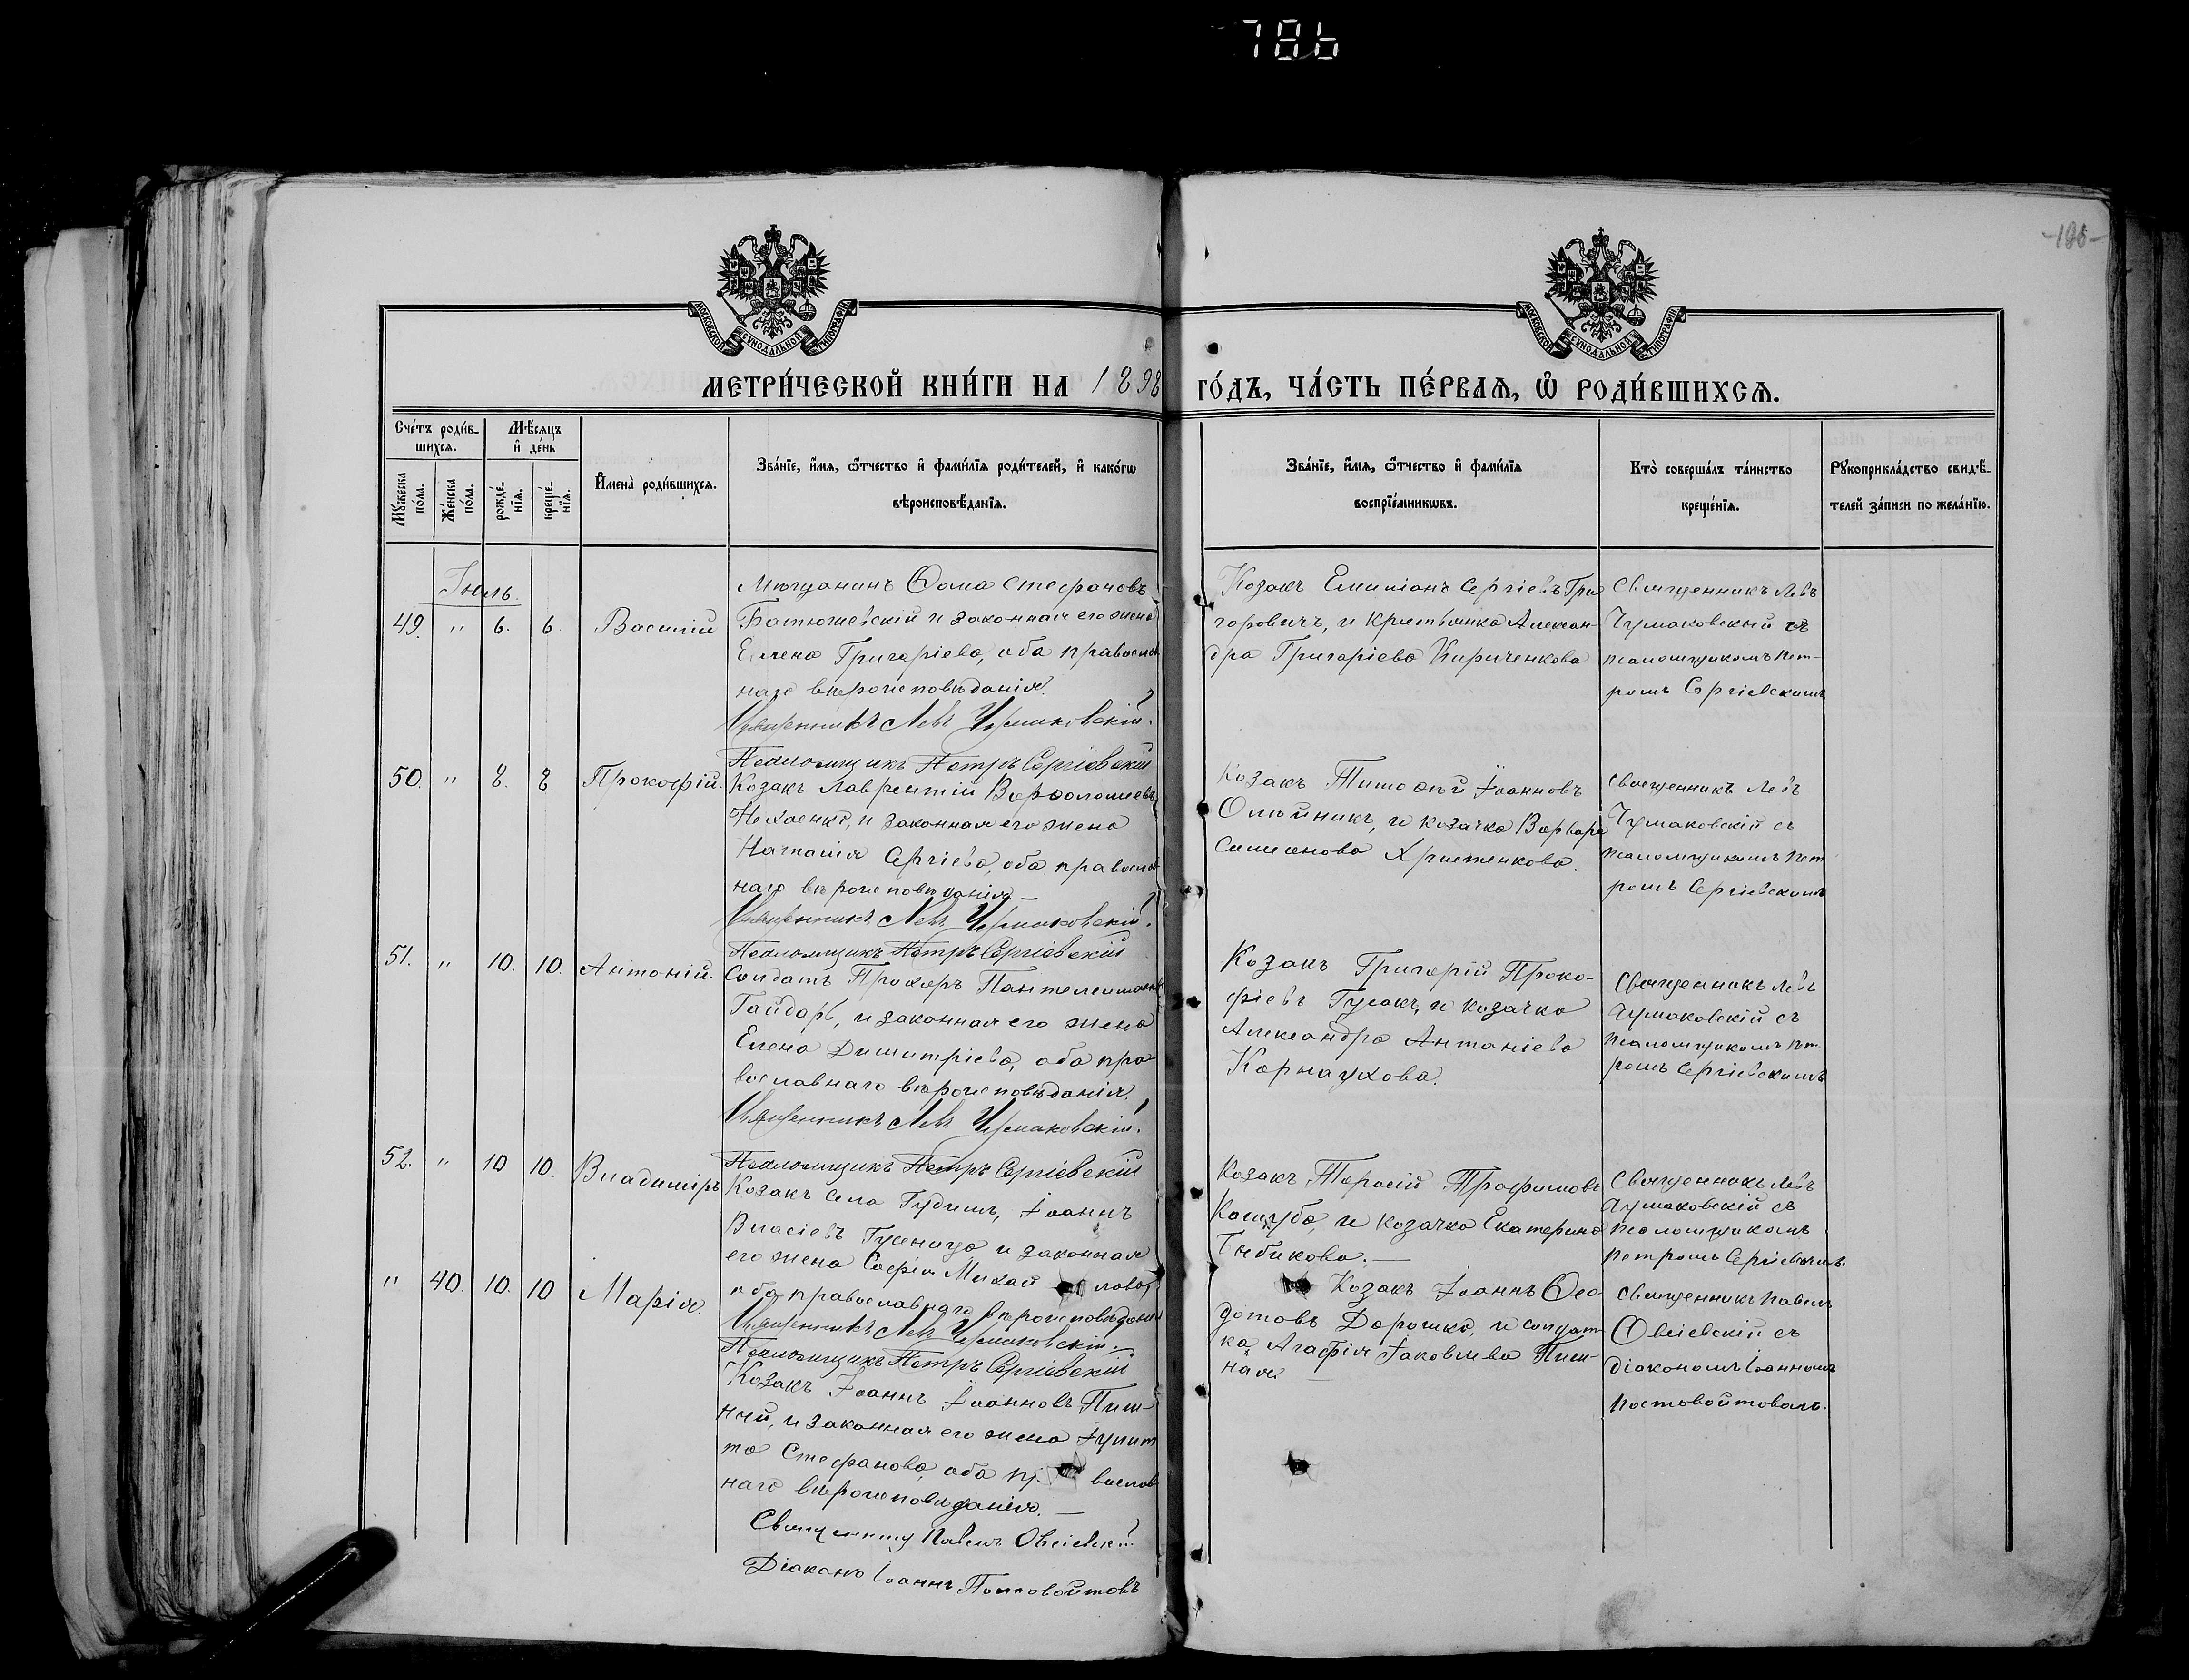 786
-186-
МОСКОВСКОЙ СѴНОДАЛЬНОЙ ТИПОГРАФІИ
МОСКОВСКОЙ СѴНОДАЛЬНОЙ ТИПОГРАФІИ
МЕТРИ́ЧЕСКОЙ КНИ́ГИ НА 1898 ГО́ДЪ, ЧА́СТЬ ПЕ́РВАѦ, Ѽ РОДИ́ВШИХСѦ.
Сче́тъ роди́в-
шихсѧ.
Мꙋ́жеска
по́ла.
Же́нска
по́ла.
Мѣ́сѧцъ
и҆ де́нь
рожде́-
нїѧ.
креще́-
нїѧ.
И҆мена̀ роди́вшихсѧ.
Зва́нїе, и҆́мѧ, ѻ҆́тчество и҆ фами́лїѧ роди́телей, и҆ како́гѡ
вѣроисповѣ́данїѧ.
Зва́нїе, и҆́мѧ, ѻ҆́тчество и҆ фами́лїѧ
воспрїе́мникѡвъ.
Кто̀ соверша́лъ та́инство
креще́нїѧ.
Рꙋкоприкла́дство свидѣ́-
телей за́писи по жела́нїю.
Іюль.
49. " 6. 6 Василій
Мѣщанинъ Ѳома Стефановъ
Батюшевскій и законная его жена
Елена Григоріева, оба православ
наго вѣроисповѣданія.
Священникъ Левъ Чумаковскій.
Псаломщикъ Петръ Сергіевскій
Козакъ Емиліанъ Сергіевъ Гри
горовичъ, и крестьянка Алексан-
дра Григоріева Кириченкова
Священникъ Левъ
Чумаковскій съ
псаломщикомъ Пет-
ромъ Сергіевскимъ
50. " 8. 8 Прокофій.
Козакъ Лаврентій Варѳоломеевъ
Нехаенко, и законная его жена
Наталія Сергіева, оба православ
наго вѣроисповѣданія.—
Священникъ Левъ Чумаковскій.
Псаломщикъ Петръ Сергіевскій
Козакъ Тимоѳей Іоанновъ
Олейникъ, и козачка Варвара
Симеонова Христенкова.
Священникъ Левъ
Чумаковскій съ
псаломщикомъ Пет
ромъ Сергіевскимъ
51. " 10. 10. Антоній.
Солдатъ Прохоръ Пантелеимоновъ
Гайдаръ, и законная его жена
Елена Димитріева, оба пра
вославнаго вѣроисповѣданія.
Священникъ Левъ Чумаковскій.
Псаломщикъ Петръ Сергіевскій
Козакъ Григорій Проко-
фіевъ Гусакъ, и козачка
Александра Антоніева
Карнаухова.
Священникъ Левъ
Чумаковскій съ
псаломщикомъ Пет
ромъ Сергіевскимъ
52. " 10 10. Владиміръ
Козакъ села Гудимъ, Іоаннъ
Власіевъ Гусеница и законная
его жена Софія Михайлова,
оба православнаго вѣроисповѣданія
Священникъ Левъ Чумаковскій.
Псаломщикъ Петръ Сергіевскій
Козакъ Тарасій Трофимовъ
Кашуба, и козачка Екатерина
Бибикова.—
Священникъ Левъ
Чумаковскій съ
псаломщикомъ
Петромъ Сергіевскимъ.
" 40. 10. 10 Марія.
Козакъ Іоаннъ Іоанновъ Пиш-
ный, и законная его жена Іулит
та Стефанова, оба православ
наго вѣроисповѣданія.—
Священникъ Павелъ Овсіевскій
Діаконъ Іоаннъ Постовойтовъ
Козакъ Іоаннъ Ѳео
дотовъ Дорошко, и солдат
ка Агафія Іаковлева Пиш-
ная
Священникъ Павелъ
Овсіевскій съ
діакономъ Іоанномъ
Постовойтовымъ.